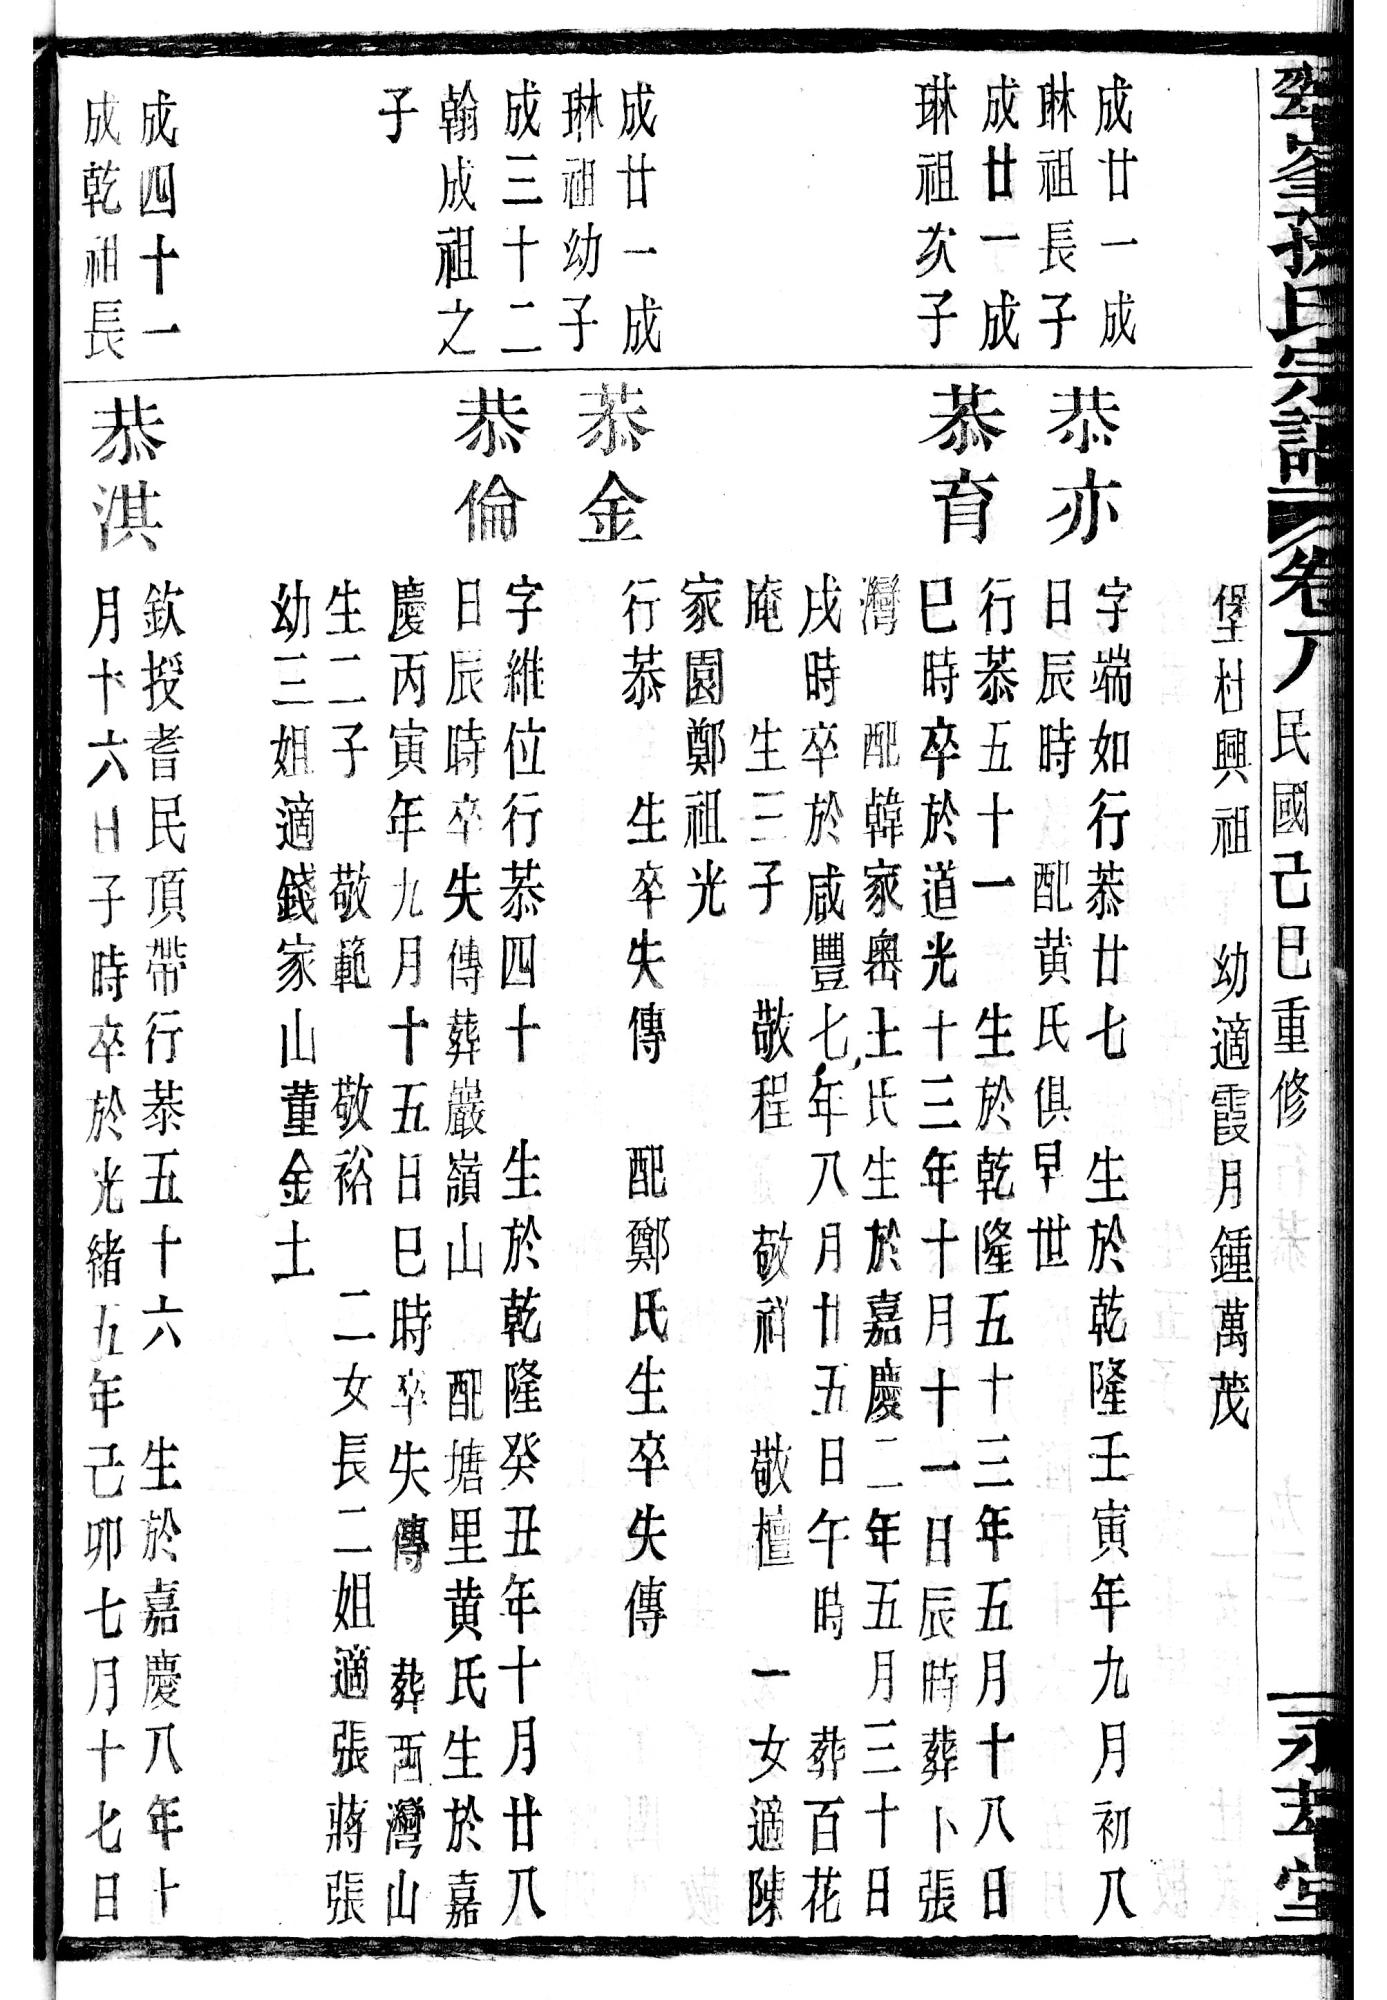 孫氏宗譜 卷八 民國己巳重修 永葊堂
堡村興祖 幼適霞月鍾萬茂
成廿一成
琳祖長子
恭亦
字端如行恭廿七 生於乾隆壬寅年九月初八
日辰時 配黃氏俱早世
成廿一成
琳祖次子
恭育
行恭五十一 生於乾隆五十三年五月十八日
巳時卒於道光十三年十月十一日辰時葬卜張
灣 配韓家嶴土氏生於嘉慶二年五月三十日
戌時卒於咸豐七年八月廿五日午時 葬百花
庵 生三子 敬程 敬祥 敬檀 一女適陳
家園鄭祖光
成廿一成
琳祖幼子
恭金
行恭 生卒失傳 配鄭氏生卒失傳
成三十二
翰成祖之
子
恭倫
字維位行恭四十 生於乾隆癸丑年十月廿八
日辰時卒失傳葬巖嶺山 配塘里黃氏生於嘉
慶丙寅年九月十五日巳時卒失傳 葬西灣山
生二子 敬範 敬裕 二女長二姐適張蔣張
幼三姐適錢家山董金土
成四十一
成乾祖長
恭淇
欽授耆民頂帶行恭五十六 生於嘉慶八年十
月十六日子時卒於光緒五年己卯七月十七日